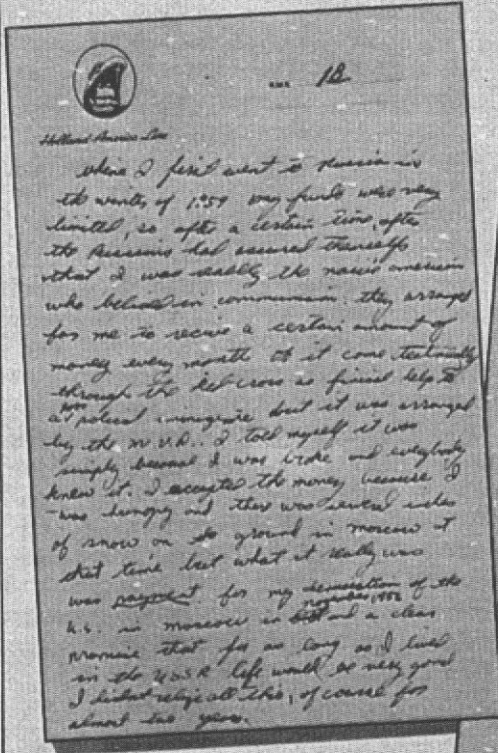 1B
Holland-America Line
whene I first went to Russia in
the winter of 1959 my funds were very
limited, so after a certain time, after
the Russians had assured themselfs
that I was really the naive american
who belived in communism, they arranged
for me to recive a certain amount of
money every month it came technically
through the Red Cross as finical help to
a polical but it was arranged
by the M.V.D.. I told myself it was
simply because I was broke and everybody
knew it. I accepted the money because I
was hungry and there was several inches
of snow on the ground in moscow at
that time but what it really was
was payment for my of the
U.S. in moscow in november and a clear
promise that for as long as I lived
in the USSR life would be very good
I didnt relize all this, of course for
almost two years.